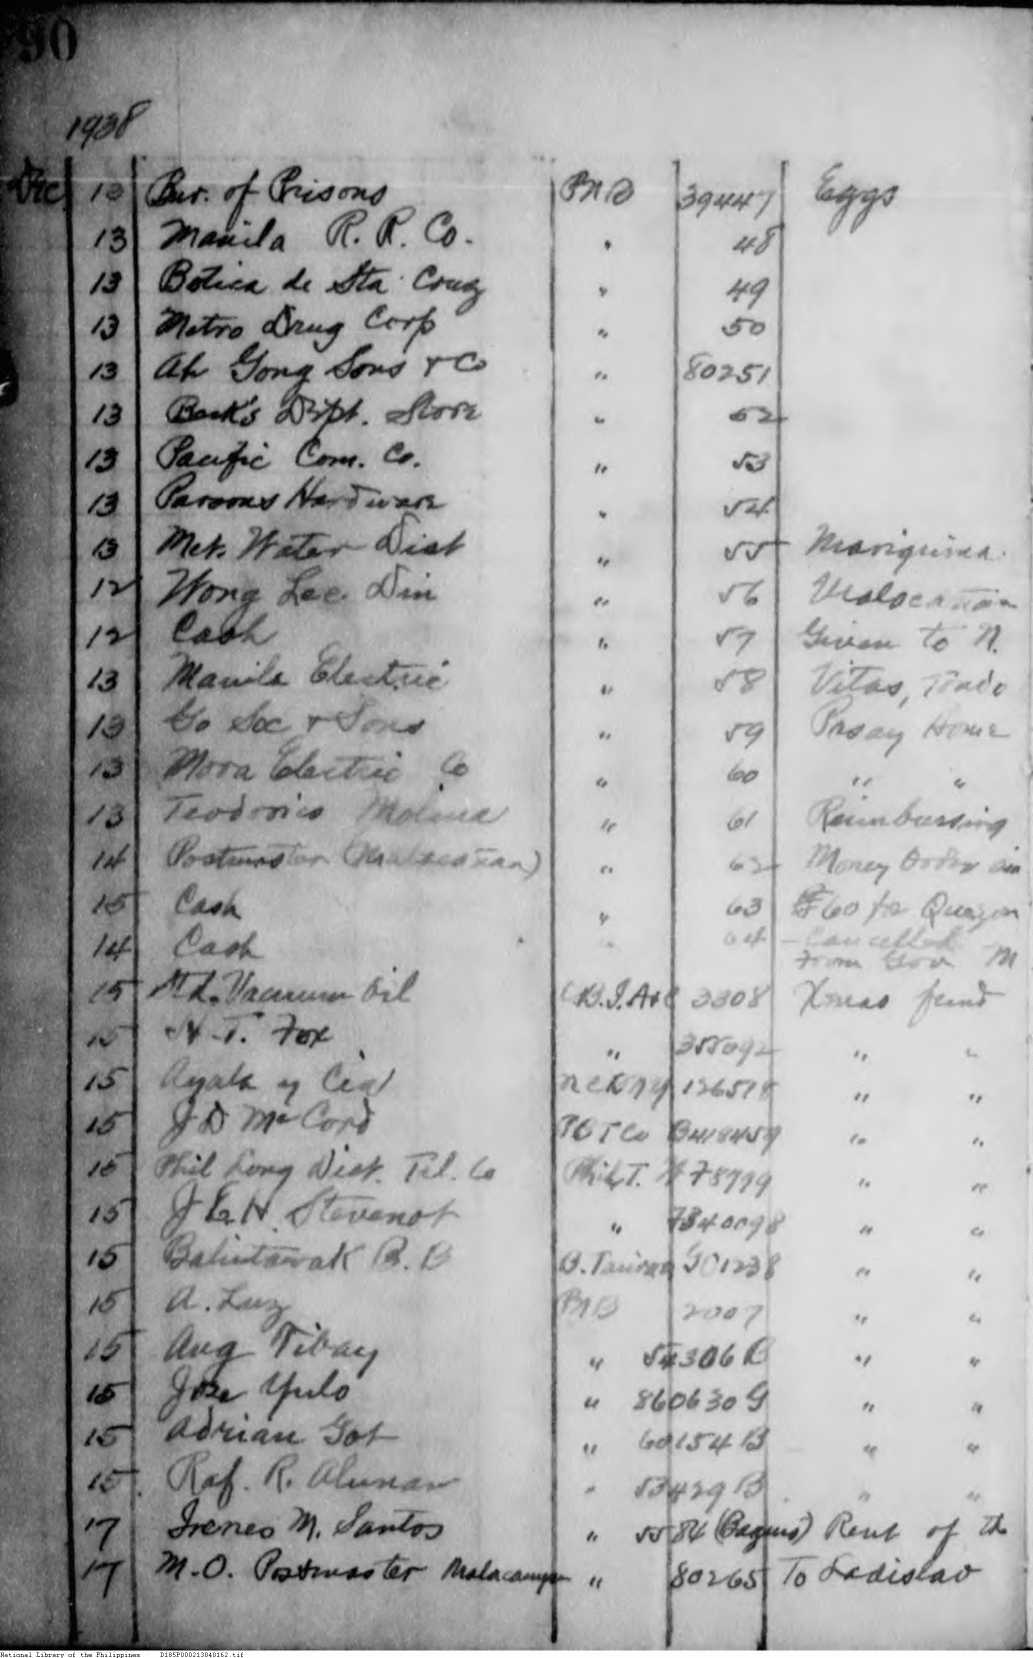 90
1938
Dec 13 Bur. of Prisons PNB 39447 Eggs
13 Manila R. R. Co. " 48
13 Botica de Sta Cruz " 49
13 Metro Drug Corp " 50
13 Ah Gong Sons & Co " 80251
13 Beck's Dept. Store " 52
13 Pacific Com. Co. " 53
13 Parsons Hardware " 54
13 Met. Water Dist " 55 Mariquina
12 Wong Lee Din " 56 Malacañan
12 Cash " 57 Given to N.
13 Manila Electric " 58 Vitas, Tondo
13 Go Soc & Sons " 59 Pasay Home
13 Mora Electric Co " 60 " "
13 Teodorico Molina " 61 Reimbursing
14 Postmaster (Malacañan) " 62 Money Order
15 Cash " 63 ₱60 for Quezon
14 Cash " 64 - Cancelled
from Gov M
15 Vacuum Oil 3308 Xmas fund
15 H. T. Fox " 355092 " "
15 Ayala y Cia NCBNY 126518 " "
15 J D McCord PBTCo B418459 " "
15 Phil Long Dist. Tel. Co Phil. T. 78779 " "
15 J E H Stevenot " 40098 " "
15 Balintawak B. B B. Taiwan 501238 " "
15 A. Luz PNB 2007 " "
15 Aug Tibay " 54306 B " "
15 Jose Yulo " 860630 G " "
15 Adrian Got " 60154 B " "
15 Raf. R. Alunan " 53429 B " "
17 Ireneo M. Santos " 5586 (Baguio) Rent of th
17 M.O. Postmaster Malacañan " 80265 To Ladislao
National Library of the Philippines D185P000213040162.tif